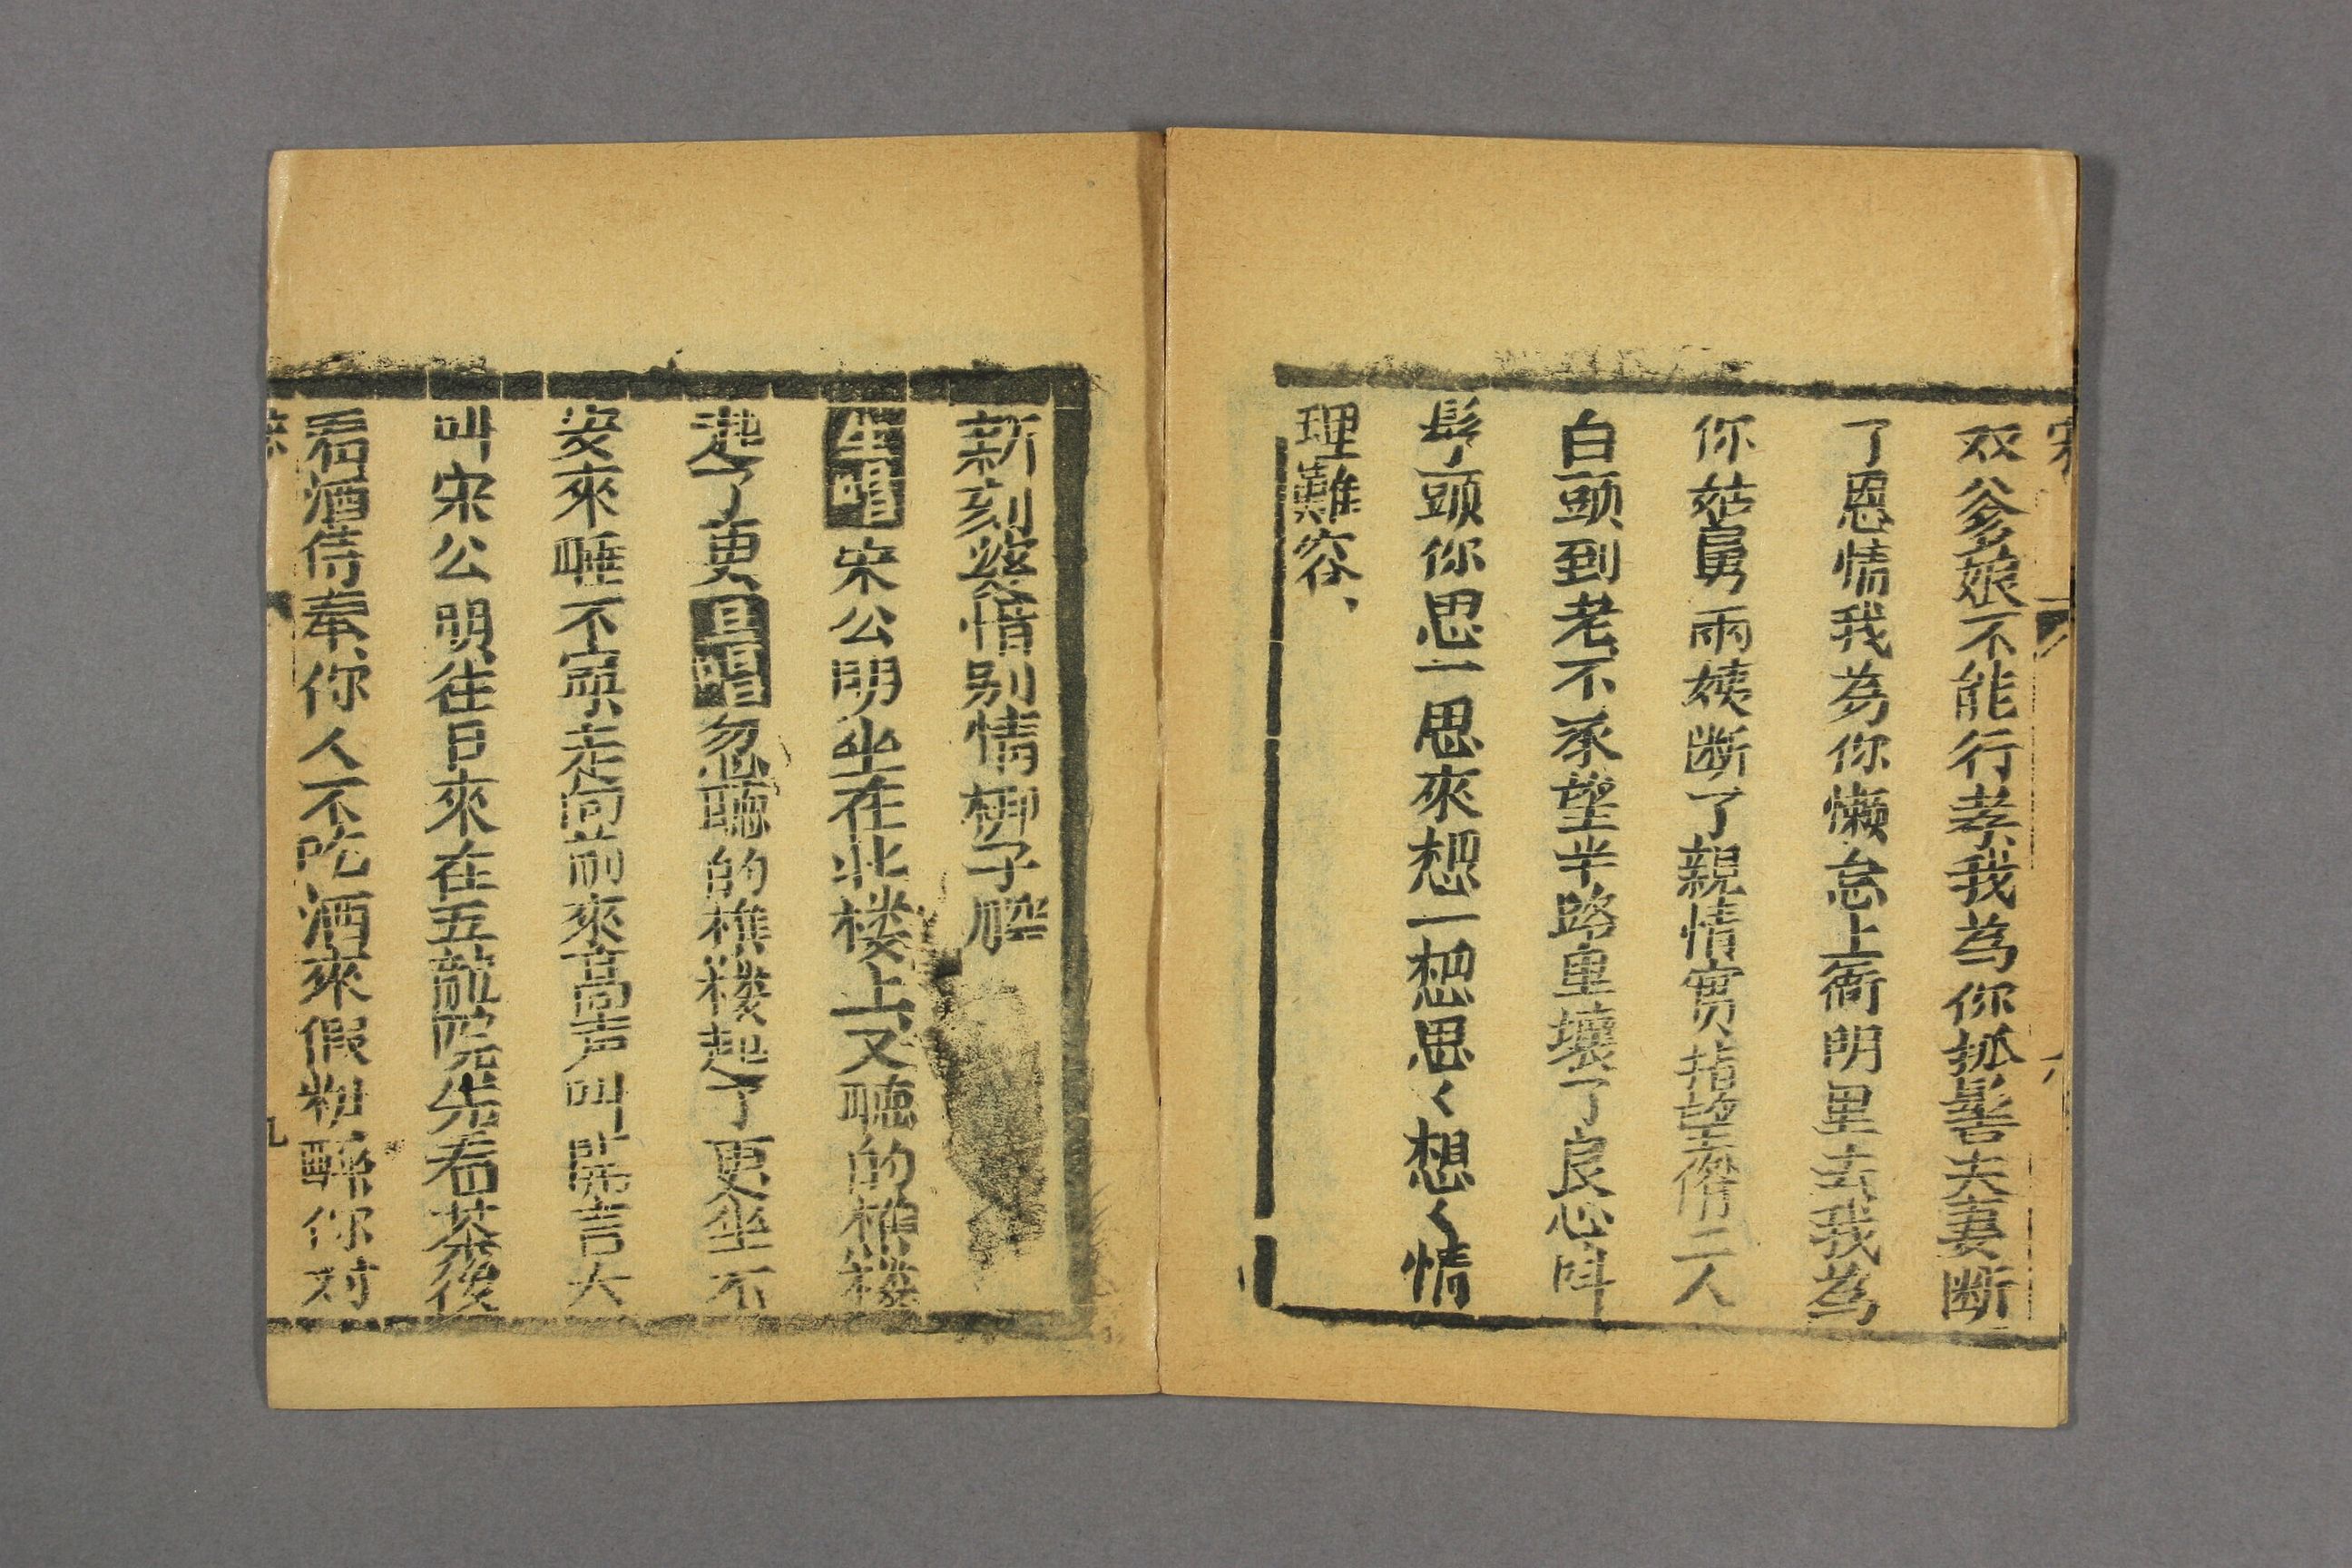 双爹娘不能行孝我為你抓髻夫妻断
了恩情我為你懒怠上衙明里去我為
你姑舅兩姨断了親情實指望偺二人
白頭到老不承望半路里壞了良心呌
髩頭你思一思來想一想思く想く情
理難容、
新刻 惜别情梆子腔
生唱宋公明坐在北楼上又聴的樵楼
起了更旦唱忽聴的樵楼起了更坐不
安來睡不寧走向前來高声叫開言大
叫宋公明往日來在五龍院先看茶後
看酒侍奉你人不吃酒來假粧醉你对
九